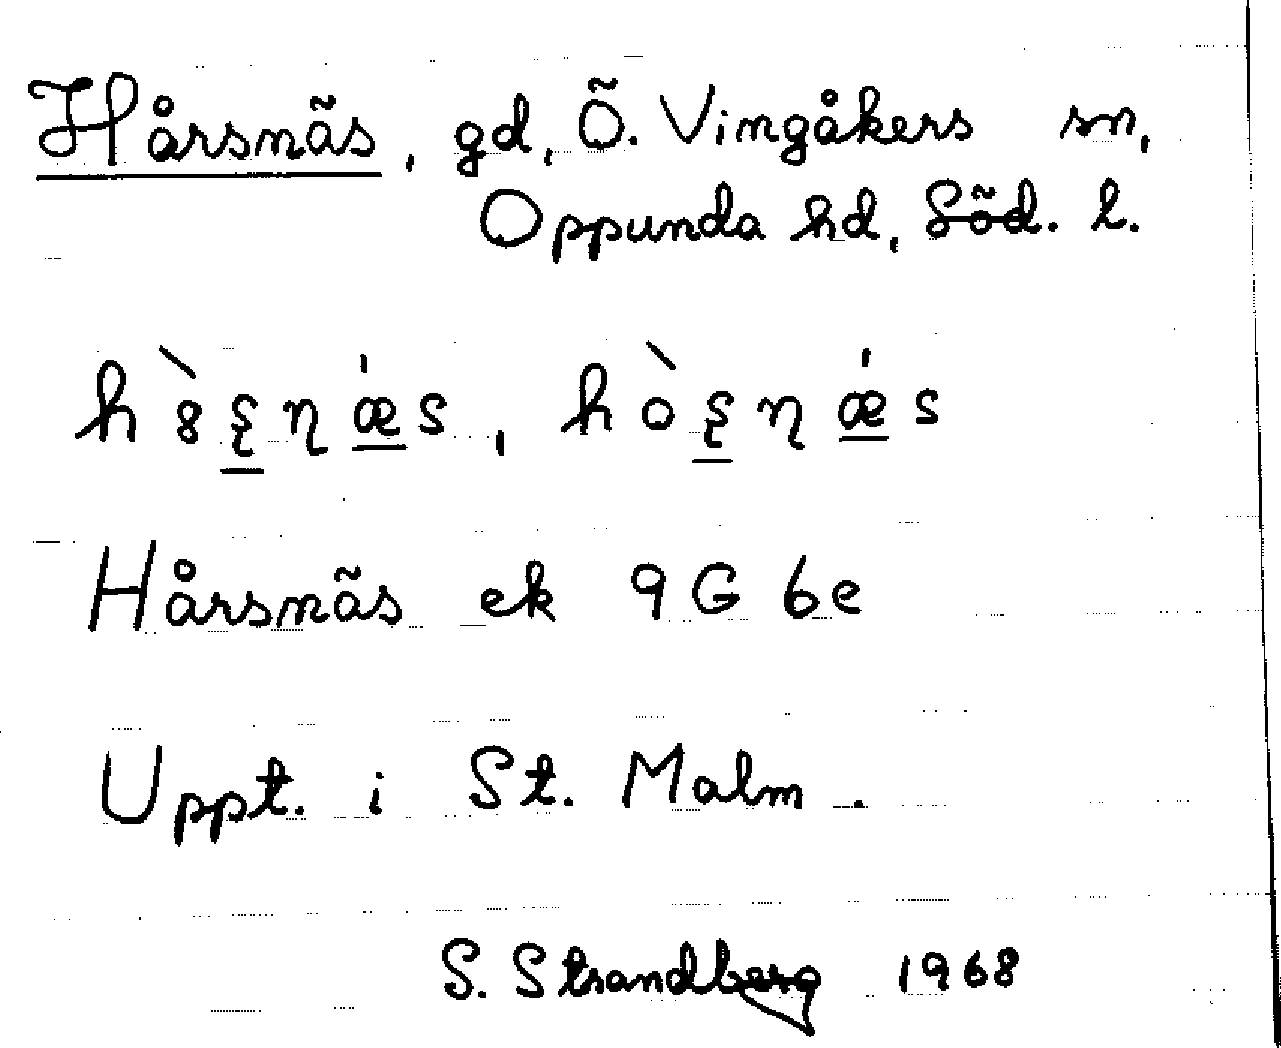 Hårsnäs, gd, Ö. Vingåkers sn,
Oppunda hd, Söd. l.
Hårsnäs ek 9G 6e
Uppt. i St. Malm.
S. Strandberg 1968